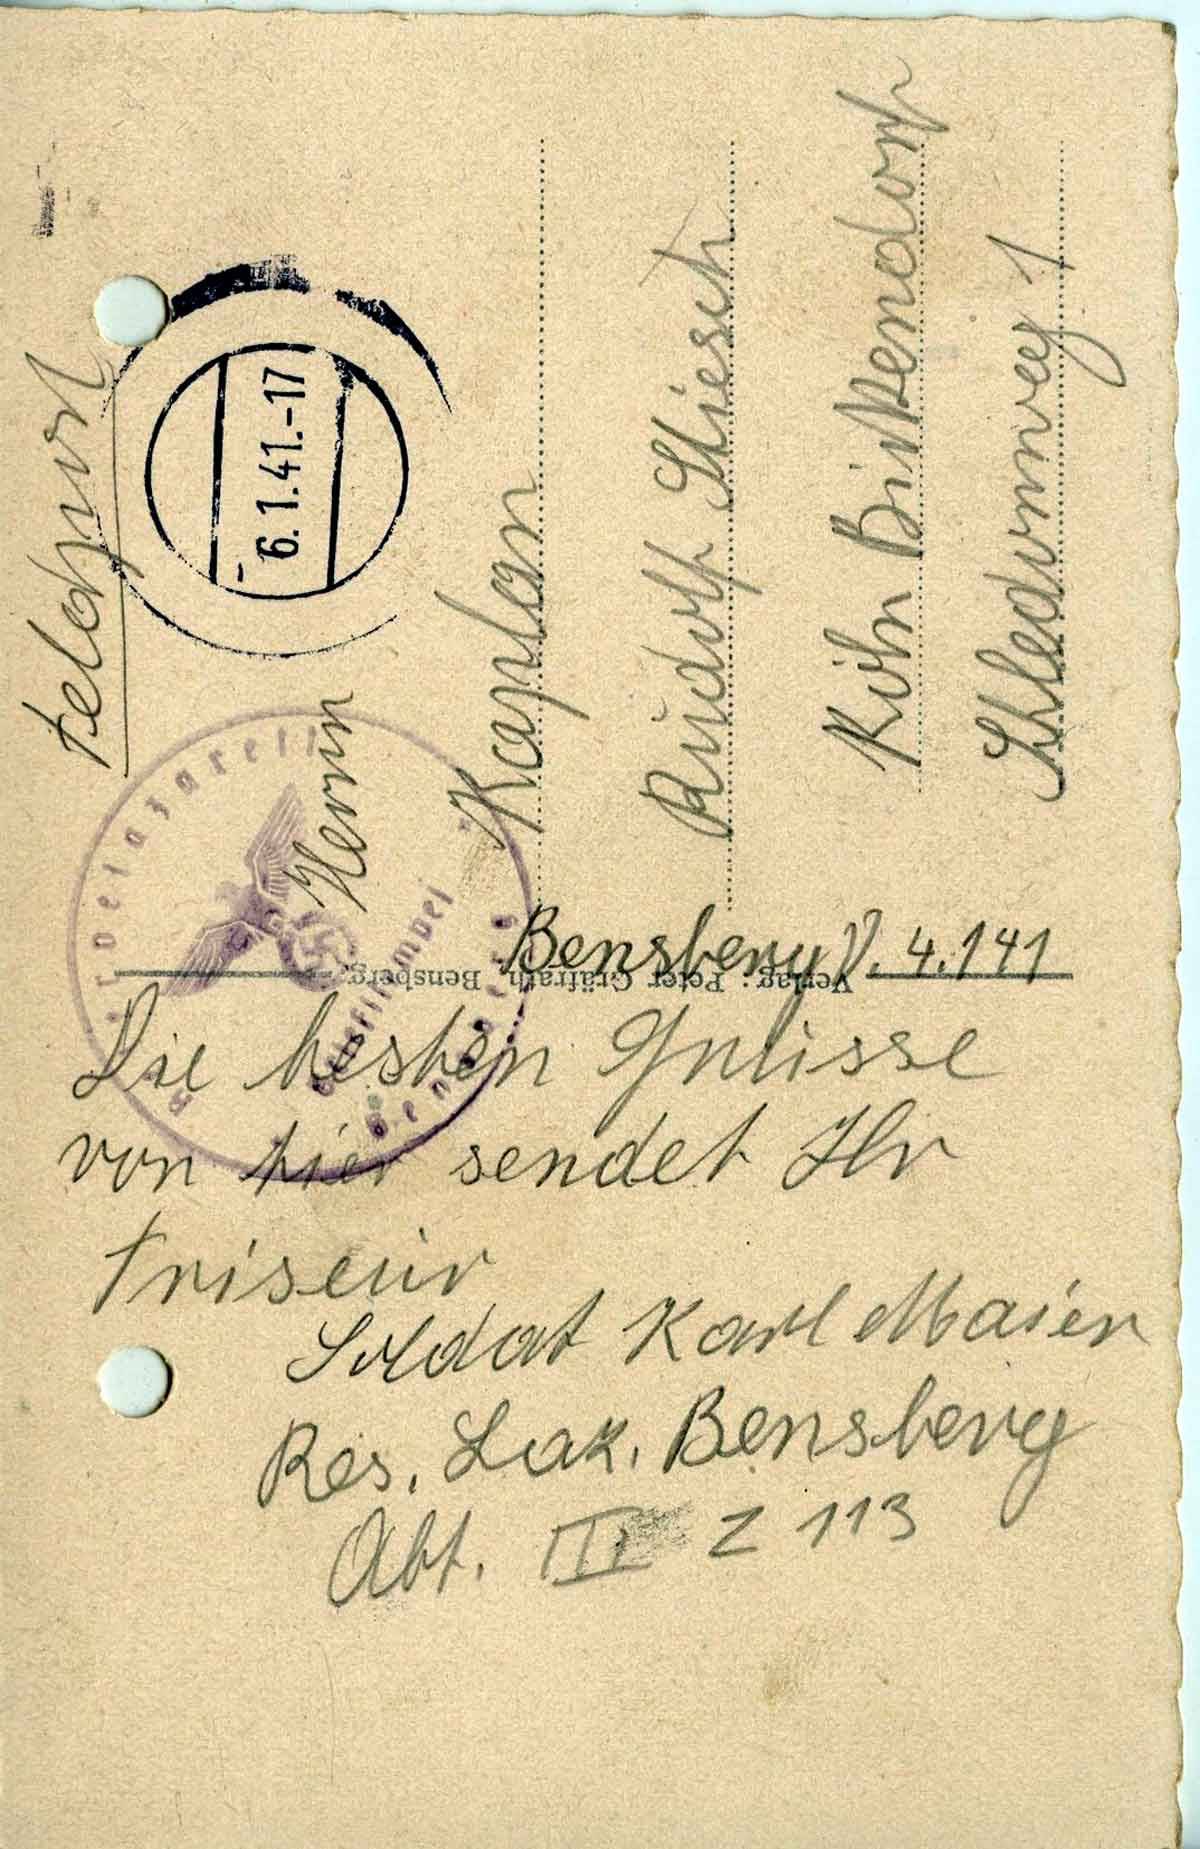 Feldpost
6.1.41.-17
Herrn
Kaplan
Rudolf Stiesch
Köln Bickendorf
Schledornweg 1
Reservelazarett
Briefstempel
Bensberg
Verlag: Peter Gräfrath, Bensberg.
Bensberg d. 4.1 41
Die besten Grüsse
von hier sendet Ihr
Friseur
Soldat Karl Maier
Res. Laz. Bensberg
Abt. III Z 113